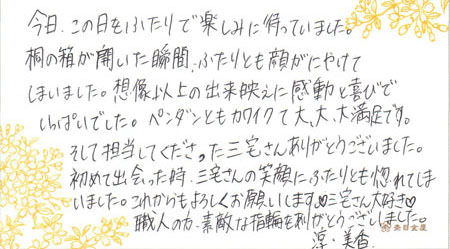 今日、この日をふたりで楽しみに待っていました。
桐の箱が開いた瞬間、ふたりとも顔がにやけて
しまいました。想像以上の出来映えに感動と喜びで
いっぱいでした。ペンダントもカワイクて大、大、大満足です。
そして担当してくださった三宅さんありがとうございました。
初めて出会った時、三宅さんの笑顔にふたりとも惚れてしま
いました。これからもよろしくお願いします♡三宅さん大好き♡
職人の方、素敵な指輪をありがとうございました。
淳・美香
杢目金屋